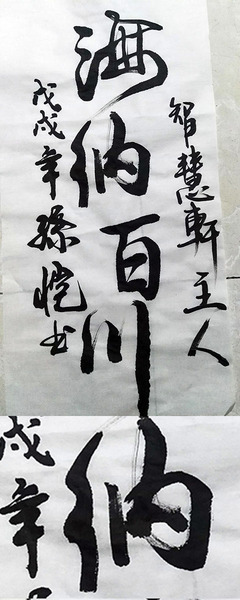 智慧軒主人
海纳百川
戊戌年孫恺书
纳
戌年